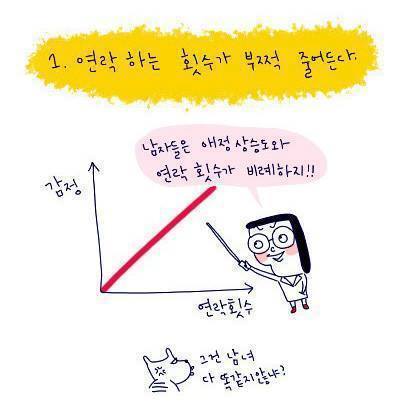 1. 연락 하는 횟수가 부쩍 줄어든다.
남자들은 애정 상승도와
연락 횟수가 비례하지!!
감정
연락횟수
그건 남녀
다 똑같지않냐?